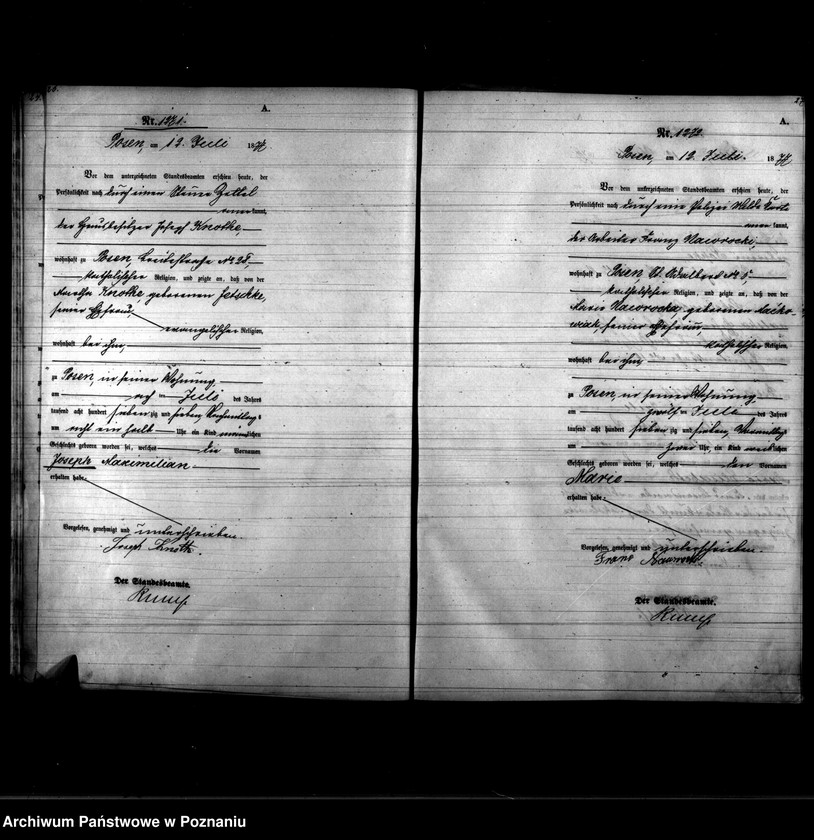 A.
Nr. 1271.
Posen, am 12. Juli 1877
Vor dem unterzeichneten Standesbeamten erschien heute, der
Persönlichkeit nach durch einen Steuer Zettel
kannt,
der Hausbesitzer Joseph Knothe,
wohnhaft zu Posen,
katholischer Religion, und zeigte an, daß von der
Knothe geborenen
seiner Ehefrau,
evangelischer Religion,
wohnhaft bei ihm,
zu Posen, in seiner Wohnung
am Juli des Jahres
tausend acht hundert sieben zig und sieben, Vormittags
um acht ein halb Uhr ein Kind männlichen
Geschlechts geboren worden sei, welches die Vornamen
Joseph Maximilian
erhalten habe.
Vorgelesen, genehmigt und unterschrieben.
Joseph
Der Standesbeamte.
A.
Nr. 1272
Posen, am 12. Juli. 1877
Vor dem unterzeichneten Standesbeamten erschien heute, der
Persönlichkeit nach durch eine Polizei Melde Karte
kannt,
der Arbeiter Franz Nawrocki,
wohnhaft zu Posen St. Adalbert No 5,
katholischer Religion, und zeigte an, daß von der
Nawrocka, geborenen
seiner Ehefrau,
katholischer Religion,
wohnhaft bei ihm,
zu Posen in seiner Wohnung
am zwölf Juli des Jahres
tausend acht hundert sieben zig und sieben, Vormittags
um zwei Uhr, ein Kind weiblichen
Geschlechts geboren worden sei, welches den Vornamen
Marie
erhalten habe.
Vorgelesen, genehmigt und unterschrieben.
Franz Nawrocki.
Der Standesbeamte.
Archiwum Państwowe w Poznaniu